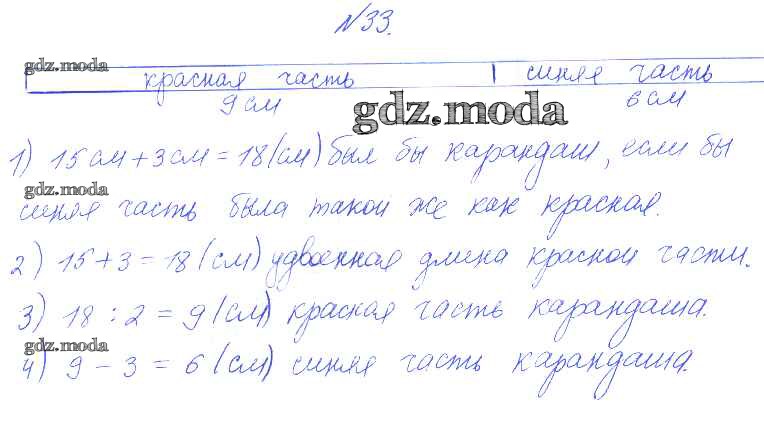 №33.
gdz.moda
красная часть синяя часть
9 см 6 см
gdz.moda
1) 15 см + 3 см = 18 (см) был бы карандаш, если бы
gdz.moda
синяя часть была такой же как красная.
2) 15 + 3 = 18 (см) удвоенная длина красной части.
3) 18 : 2 = 9 (см) красная часть карандаша.
gdz.moda
4) 9 - 3 = 6 (см) синяя часть карандаша.